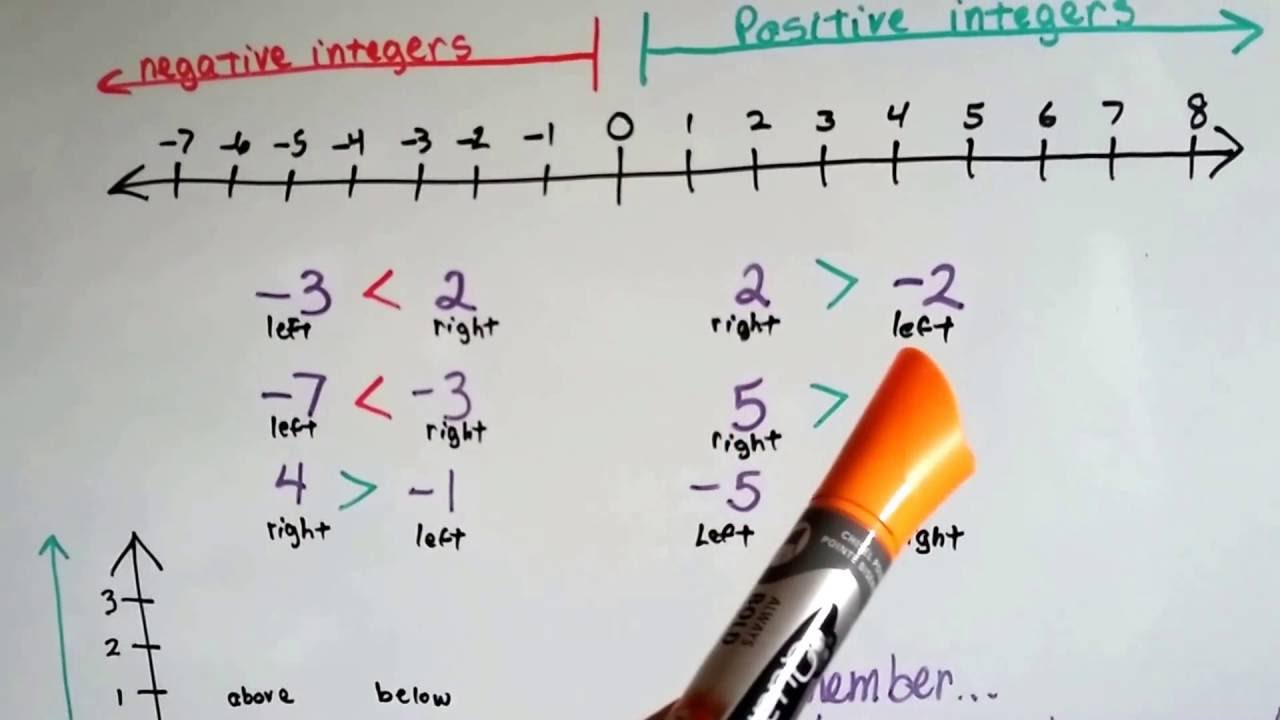 Positive integers
negative integers
-7 -6 -5 -4 -3 -2 -1 0 1 2 3 4 5 6 7 8
-3 < 2
left right
2 > -2
right left
-7 < -3
left right
5 >
right
4 > -1
right left
-5
Left
3
2
1
above below
ALWAYS
BOLD